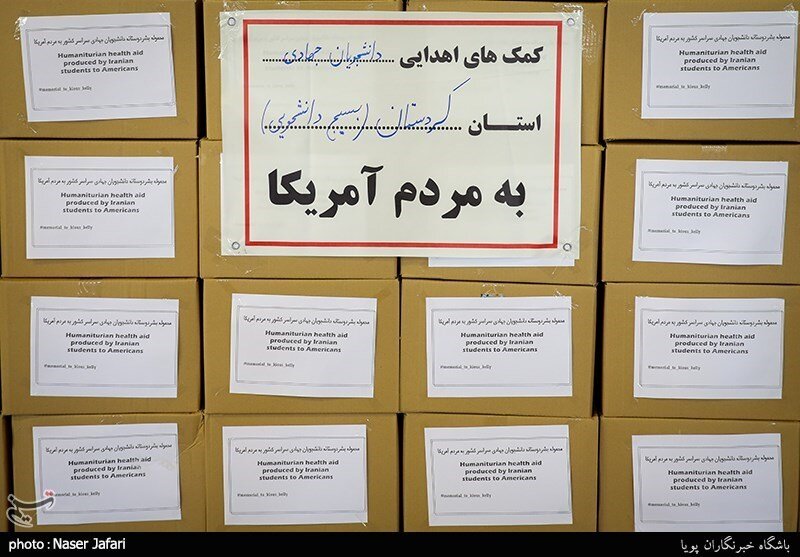 محموله بشردوستانه دانشجویان جهادی سراسر کشور به مردم آمریکا
Humaniturian health aid
produced by Iranian
students to Americans
#memorial_to_kious_kelly
کمک های اهدایی دانشجویان جهادی
استان کردستان (بسیج دانشجویی)
به مردم آمریکا
محموله بشردوستانه دانشجویان جهادی سراسر کشور به مردم آمریکا
Humaniturian health aid
produced by Iranian
students to Americans
#memorial_to_kious_kelly
محموله بشردوستانه دانشجویان جهادی سراسر کشور به مردم آمریکا
Humaniturian health aid
produced by Iranian
students to Americans
#memorial_to_kious_kelly
محموله بشردوستانه دانشجویان جهادی سراسر کشور به مردم آمریکا
Humaniturian health aid
produced by Iranian
students to Americans
#memorial_to_kious_kelly
محموله بشردوستانه دانشجویان جهادی سراسر کشور به مردم آمریکا
Humaniturian health aid
produced by Iranian
students to Americans
#memorial_to_kious_kelly
محموله بشردوستانه دانشجویان جهادی سراسر کشور به مردم آمریکا
Humaniturian health aid
produced by Iranian
students to Americans
#memorial_to_kious_kelly
محموله بشردوستانه دانشجویان جهادی سراسر کشور به مردم آمریکا
Humaniturian health aid
produced by Iranian
students to Americans
#memorial_to_kious_kelly
محموله بشردوستانه دانشجویان جهادی سراسر کشور به مردم آمریکا
Humaniturian health aid
produced by Iranian
students to Americans
#memorial_to_kious_kelly
محموله بشردوستانه دانشجویان جهادی سراسر کشور به مردم آمریکا
Humaniturian health aid
produced by Iranian
students to Americans
#memorial_to_kious_kelly
محموله بشردوستانه دانشجویان جهادی سراسر کشور به مردم آمریکا
Humaniturian health aid
produced by Iranian
students to Americans
#memorial_to_kious_kelly
محموله بشردوستانه دانشجویان جهادی سراسر کشور به مردم آمریکا
Humaniturian health aid
produced by Iranian
students to Americans
#memorial_to_kious_kelly
محموله بشردوستانه دانشجویان جهادی سراسر کشور به مردم آمریکا
Humaniturian health aid
produced by Iranian
students to Americans
#memorial_to_kious_kelly
تسنیم
photo : Naser Jafari
باشگاه خبرنگاران پویا